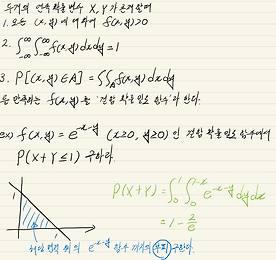 두개의 연속확률변수 X, Y가 존재하여
1. 모든 (x,y)에 대하여 f(x,y)≥0
2. ∫_{-∞}^{∞}∫_{-∞}^{∞} f(x,y)dxdy=1
3. P[(x,y)∈A]=∫∫_A f(x,y)dxdy
를 만족하는 f(x,y)를 '결합 확률밀도 함수'라 한다.
ex) f(x,y)=e^{-x-y} (x≥0, y≥0)인 결합 확률밀도 함수에서
P(X+Y≤1) 구하라.
P(X+Y)=∫_0^1∫_0^{1-x} e^{-x-y}dydx
=1-2/e
1
1
해당 영역 위의 e^{-x-y} 함수 까지의 부피 구한다.